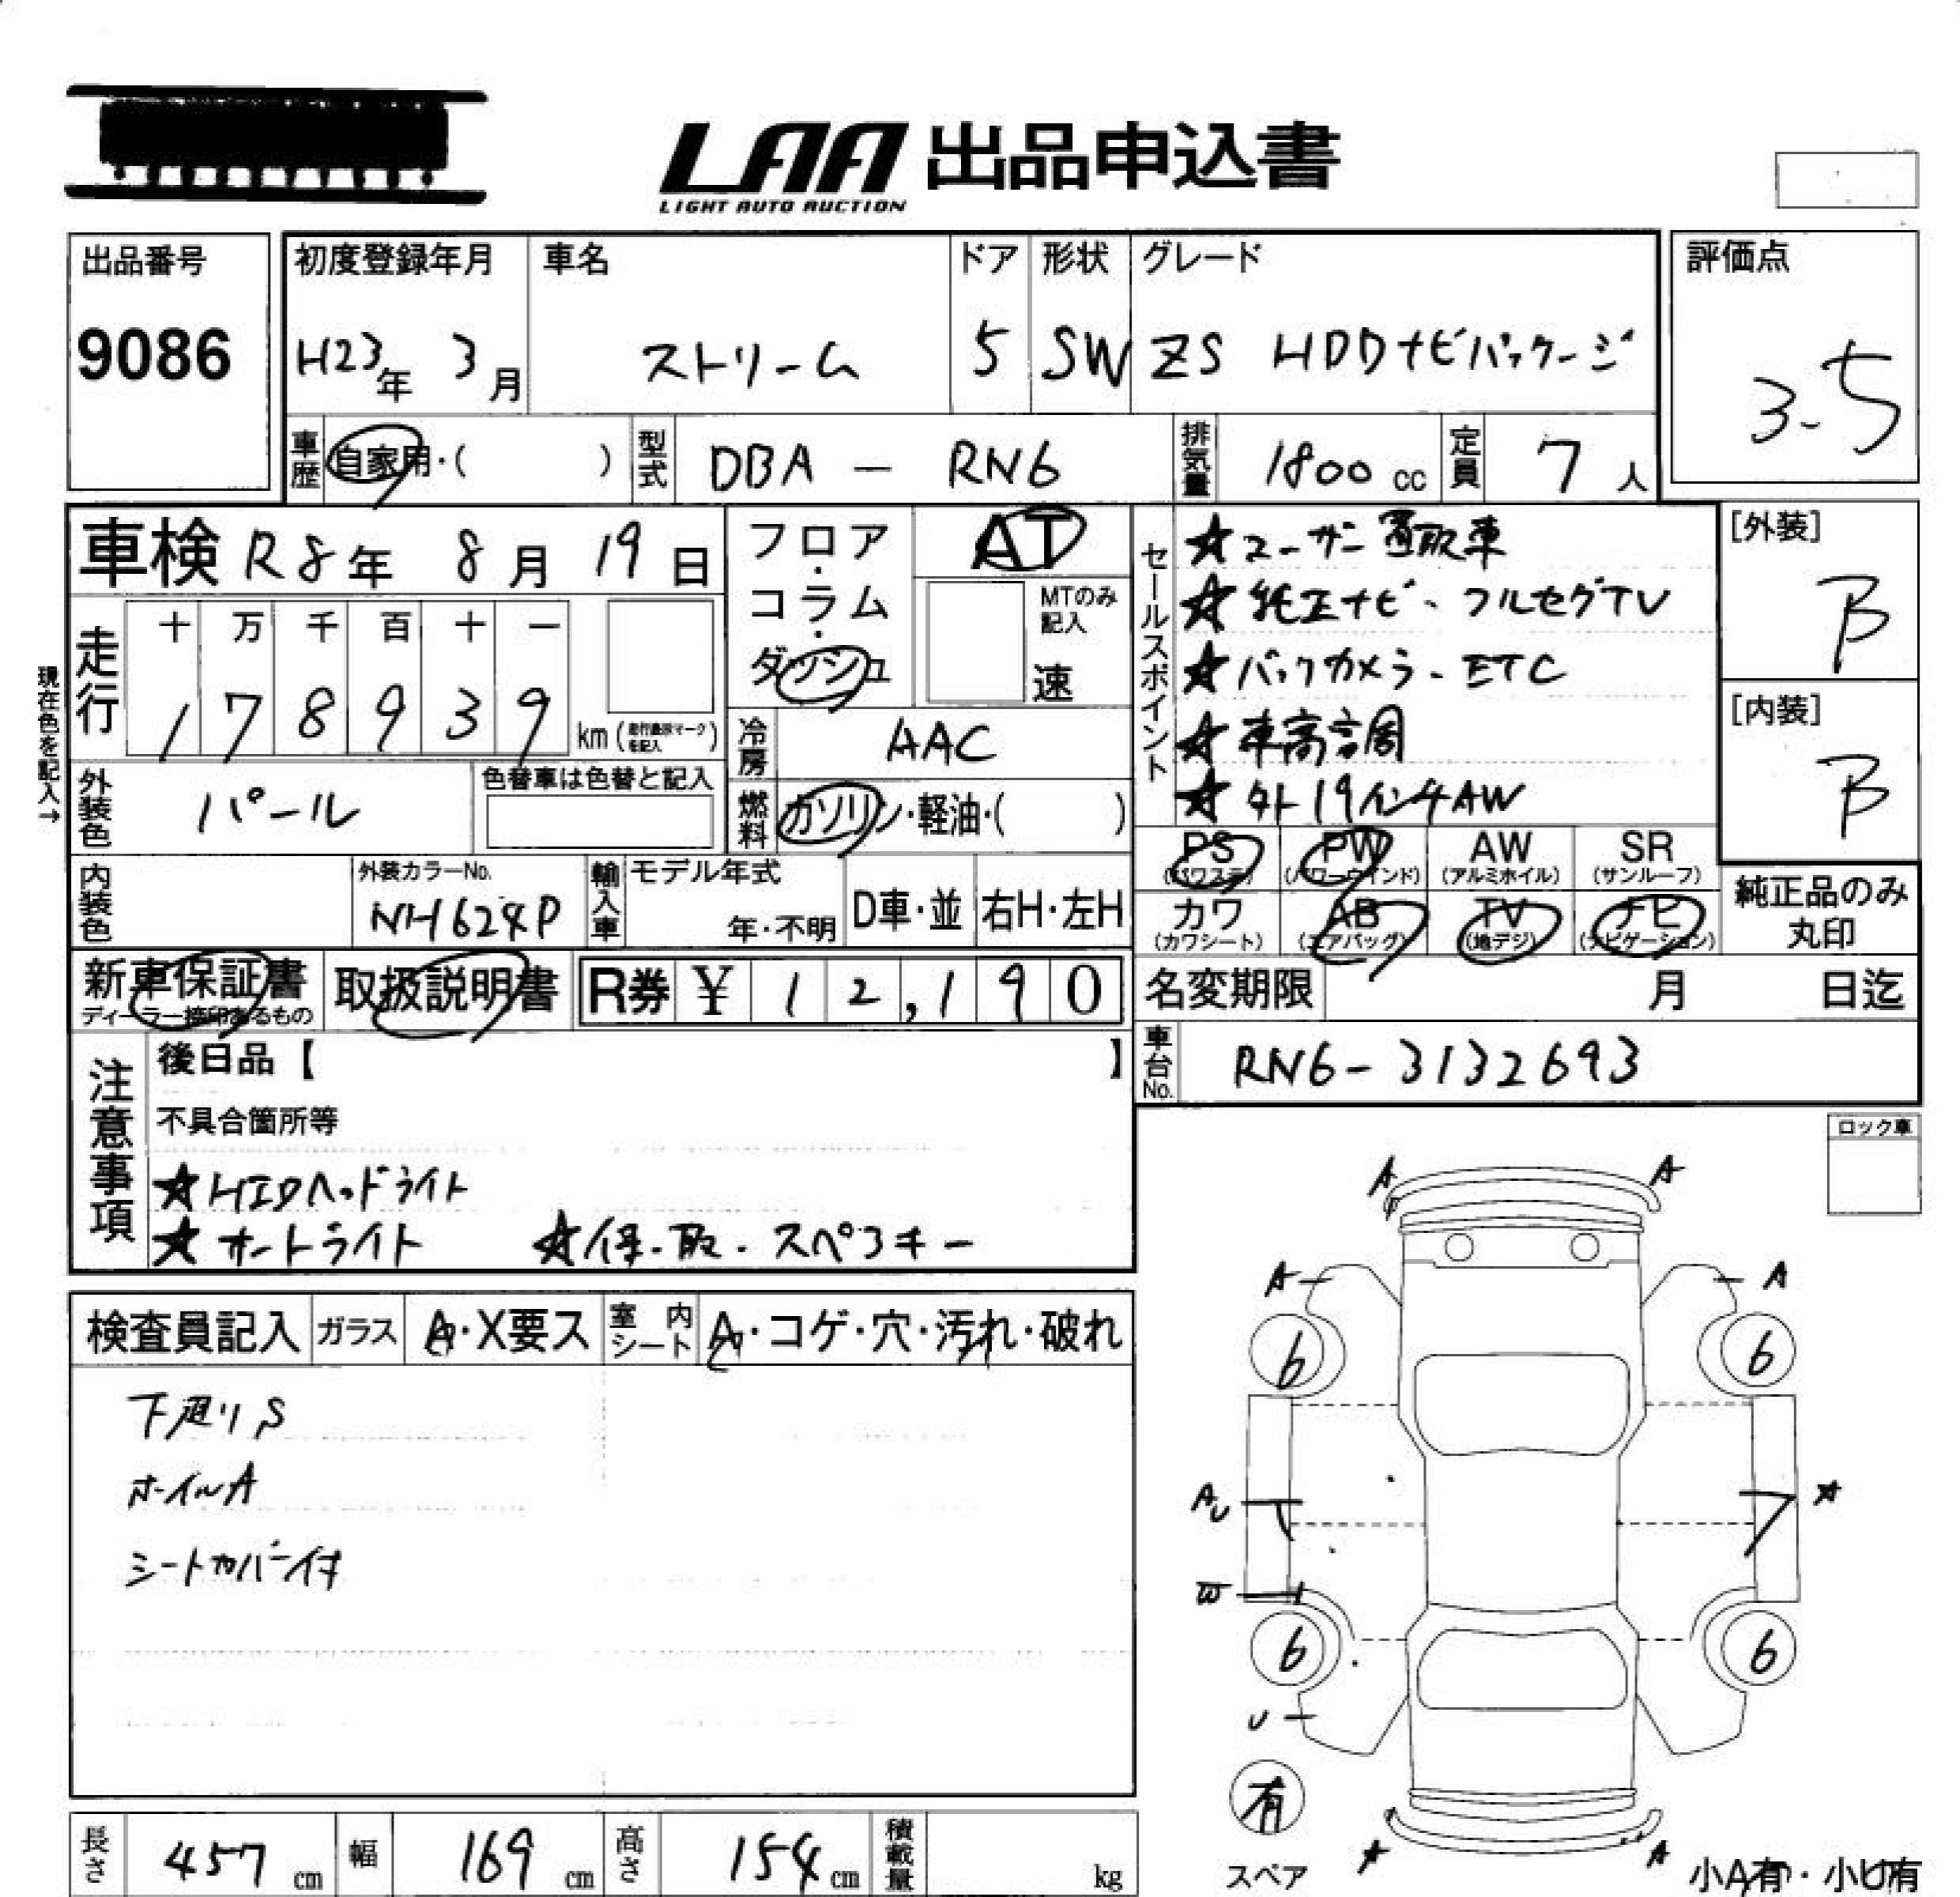 LAA 出品申込書
LIGHT AUTO AUCTION
出品番号
9086
初度登録年月
H23年 3月
車名
ストリーム
ドア
5
形状
SW
グレード
ZS HDDナビパッケージ
評価点
3.5
車歴
自家用・( )
型式
DBA - RN6
排気量
1800 cc
定員
7 人
車検 R8年 8月 19日
フロア・コラム・ダッシュ
AT
MTのみ記入
速
セールスポイント
★ユーザー買取車
★純正ナビ・フルセグTV
★バックカメラ・ETC
★車高調
★外19インチAW
[外装]
B
[内装]
B
現在色を記入→
走行
十 万 千 百 十 一
1 7 8 9 3 9 km
冷房
AAC
燃料
ガソリン・軽油・( )
外装色
パール
色替車は色替と記入
内装色
外装カラーNo.
NH624P
輸入車
モデル年式
年・不明
D車・並
右H・左H
PS
(パワステ)
PW
(パワーウインド)
AW
(アルミホイル)
SR
(サンルーフ)
カワ
(カワシート)
AB
(エアバッグ)
TV
(地デジ)
ナビ
(ナビゲーション)
純正品のみ
丸印
新車保証書
ディーラー捺印あるもの
取扱説明書
R券 ¥ 12,190
名変期限 月 日迄
車台No.
RN6-3132693
注意事項
後日品【 】
不具合箇所等
★HIDヘッドライト
★オートライト ★保・取・スペアキー
ロック車
検査員記入
ガラス
A・X要ス
室内シート
A・コゲ・穴・汚れ・破れ
下廻りS
ホイルA
シートカバー付
A A
A A
6 6
AU
W
6 6
U
有
スペア
A
小A有・小U有
長さ
457 cm
幅
169 cm
高さ
154 cm
積載量
kg